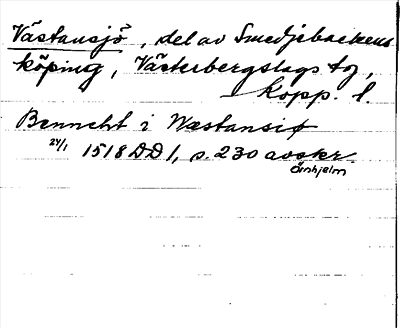 Västansjö, del av Smedjebackens
köping, Västerbergslags tg,
Kopp. l.
Bennckt i Wæstansiø
24/1 1518 DD 1, s. 230 avskr.
Örnhjelm